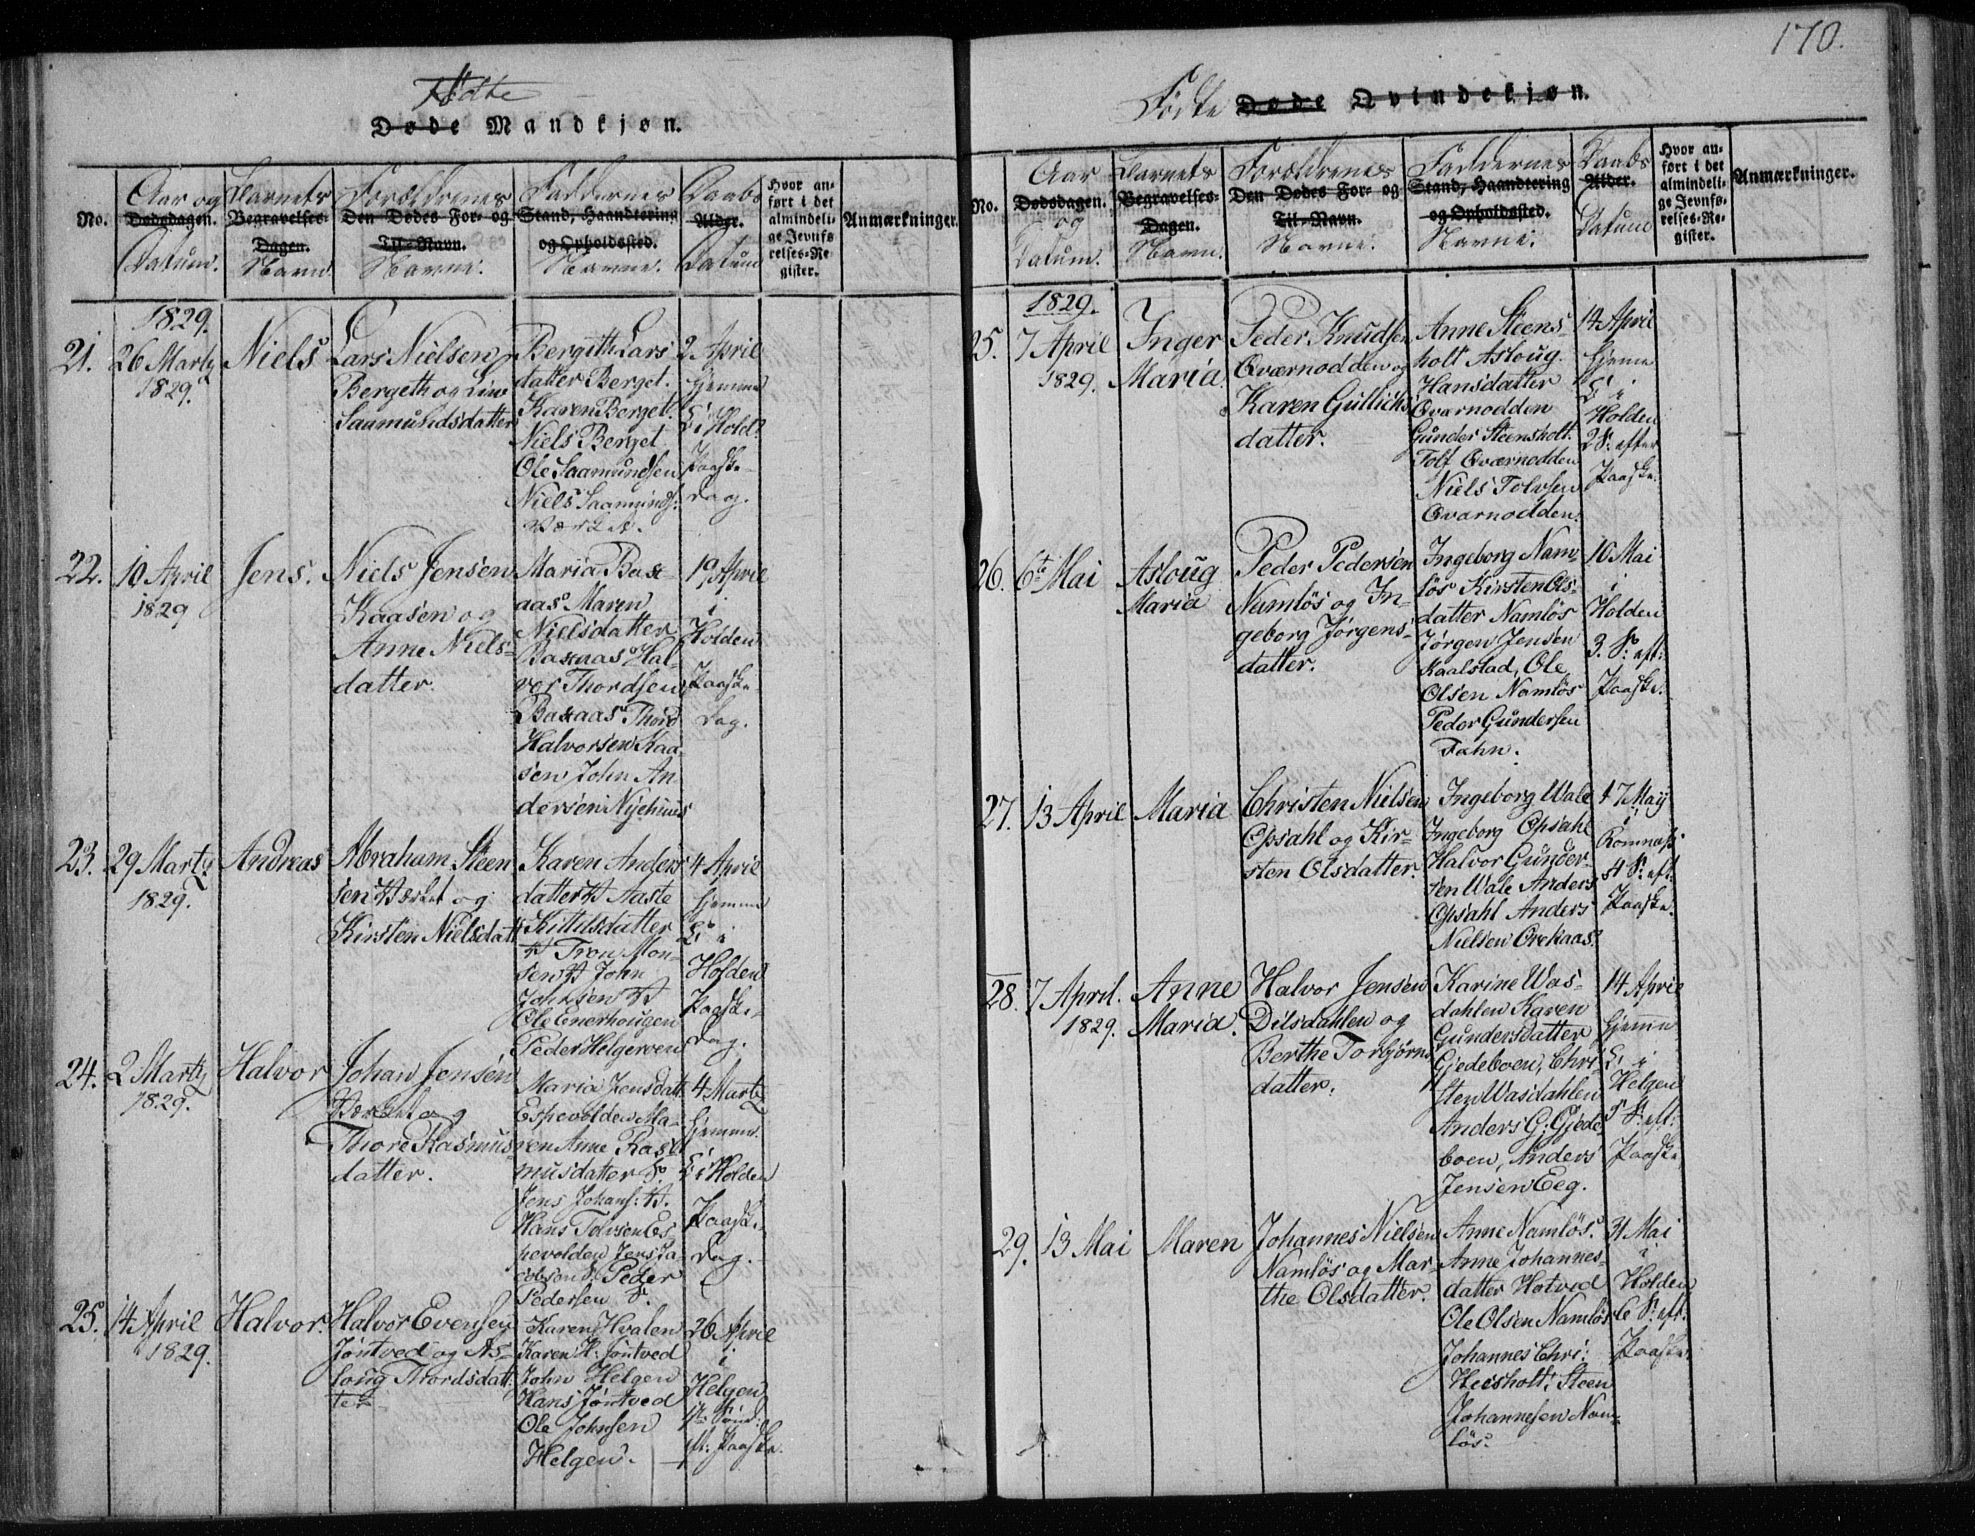 170.
Fødte
Døde Mandkjøn.
No.
Aar og
Dødsdagen.
Datum.
Barnets
Begravelses-
Dagen.
Navn
Forældrenes
Den Dødes For- og
Til-Navn.
Navne.
Faddernes
Stand, Haandtering
og Opholdssted.
Navne.
Daabs
Alder.
Datum
Hvor an-
ført i det
almindeli-
ge Jevnfø
relses-Re-
gister.
Anmærkninger.
1829.
21.
26 Marty
1829.
Niels
Lars Nielsen
Bergeth og Live
Saamundsdatter
Bergith Lars
datter Berget.
Karen Berget.
Niels Berget
Ole Saamundsen
Niels Saamunds:
Værket.
2 April
hjemme
i Hold:
Paaske-
dag.
22.
10 April
1829
Jens.
Niels Jensen
Kaasen og
Anne Niels-
datter.
Maria Bax-
aas Maren
Nielsdatter
Baxaas Hal-
vor Thordsen
Baxaas Thord
Halvorsen Kaa-
sen John An-
dersen Nyehuus
19 April
i
Holden
Paaske-
dag.
23.
29 Marty
1829.
Andreas
Abraham Steen
sen Værket og
Kirsten Nielsdatt
Karen Anders
datter V Aaste
Kittilsdatter
V Tron Mon-
sen V John
Johnsen V
Ole Enerhougen
Peder Helgeroen
4 April
hjemme
i
Holden
Paaske-
dag.
24.
2 Marty
1829.
Halvor
Johan Jensen
Værket og
Thore Rasmus-
datter.
Maria Jensdatt
Espevolden Ma-
ren Anne Ras-
musdatter V.
Jens Johans: V.
Hans Tolvsen Es-
pevolden Jens Ja-
cobsen V. Peder
Pedersen V.
4 Marty
hjemme.
i Holden
Paaske-
dag.
25.
14 April
1829.
Halvor.
Halvor Evensen
Jøntved og As-
loug Thordsdat-
ter
Karen Hvalen
Karen H. Jøntved
John Helgen
Hans Jøntved
Ole Johnsen
Helgen.
26 April
i
Helgen
1ste Sønd:
eft. Paaske.
Fødte Døde Qvindekjøn.
No.
Aar
Dødsdagen.
og
Datum.
Barnets
Begravelses-
Dagen.
Navn.
Forældrenes
Den Dødes For- og
Til-Navn.
Navne.
Faddernes
Stand, Haandtering
og Opholdssted.
Navne.
Daabs
Alder.
Datum
Hvor an-
ført i det
almindeli-
ge Jevnfø-
relses-Re-
gister.
Anmærkninger.
1829.
25.
7 April
1829.
Inger
Maria.
Peder Knudsen
Qværnodden og
Karen Gullichs
datter.
Anne Steens
holt Asloug
Hansdatter
Qvarnodden
Gunder Steensholt.
Tolf Qværnodden
Niels Tolvsen
Qvarnodden.
14 April
hjeme
i
Holden
2 S: efter
Paaske.
26.
6te Mai
Asloug
Maria
Peder Pedersen
Namløs og In-
geborg Jørgens-
datter.
Ingeborg Nam-
løs Kirsten Ols-
datter Namløs
Jørgen Jensen
Kaalstad, Ole
Olsen Namløs
Peder Gundersen
Fahn.
10 Mai
i
Holden
3. S: eft:
Paaske.
27.
13 April
Maria
Christen Nielsen
Opsahl og Kir-
sten Olsdatter.
Ingeborg Wale
Ingeborg Opsahl
Halvor Gunder-
sen Wale Anders
Opsahl Anders
Nielsen Orekaas.
17 Maij
i
Romnæs
4 S: eft:
Paaske.
28.
7 April.
1829.
Anne
Maria.
Halvor Jensen
Dilsdahlen og
Berthe Torbjørns
datter.
Karine Was-
dahlen Karen
Gundersdatter
Gjedeboen, Chri-
sten Wasdahlen
Anders G: Gjede-
boen, Anders
Jensen Eeg.
14 April
hjeme
i
Helgen
5 S: eft:
Paaske
29.
13 Mai
Maren
Johannes Nielsen
Namløs og Mar-
the Olsdatter.
Anne Namløs.
Anne Johannes-
datter Hotved
Ole Olsen Namløs
Johannes Chri:
Heisholt, Steen
Johannesen Nam-
løs.
31 Mai
i
Holden
6 S: eft:
Paaske.